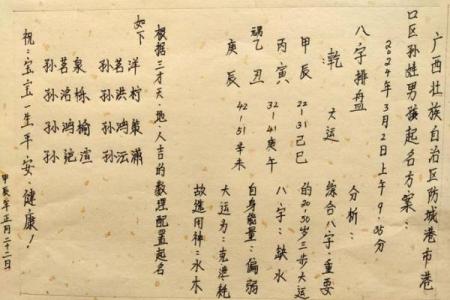 广西壮族自治区防城港市港
口区孙娃男孩起名方案:
2024年3月2日上午9.05分
八字排盘 分析:
乾 大运 综合八字,重要
甲辰 22—31己巳 的20-50岁三步大运
丙寅 32—41庚午 八字:缺水
乙丑 自身能量:偏弱
庚辰 42—51辛未 大运为:克泄耗
故选用神:水木
根据三才天、地、人吉的数理配置起名
如下
孙茗泉 孙茗洋
孙 浩栎 孙 洪村
孙 鸿榆 孙 鸿策
孙 渲 孙鸿 潇
祝:宝宝一生平安、健康!
甲辰年正月二十二日